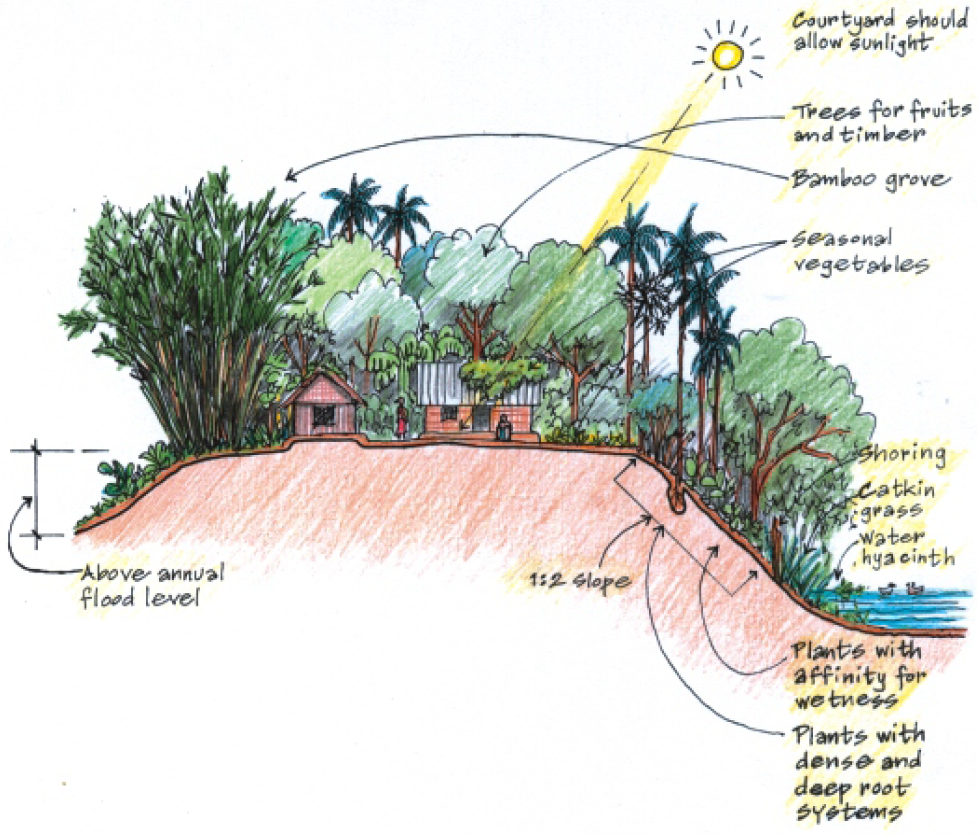 Courtyard should
allow sunlight
Trees for fruits
and timber
Bamboo grove
Seasonal
vegetables
Shoring
Catkin
grass
Water
hyacinth
Above annual
flood level
1:2 slope
Plants with
affinity for
wetness
Plants with
dense and
deep root
systems